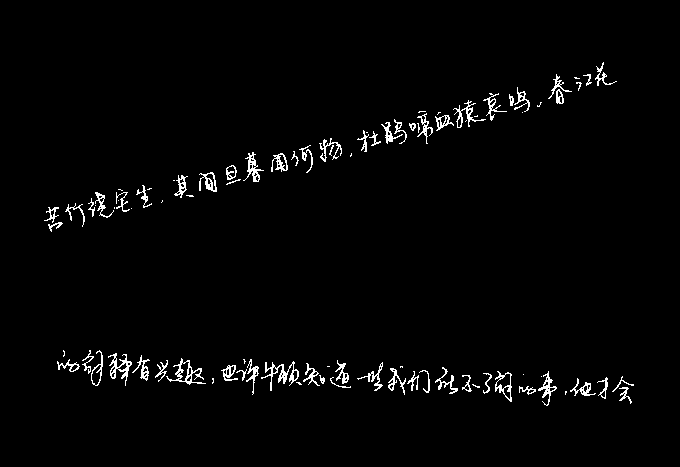 苦竹绕宅生,其间旦暮闻何物,杜鹃啼血猿哀鸣,春江花
的解释有兴趣,也许牛顿知道一些我们所不了解的事,他才会